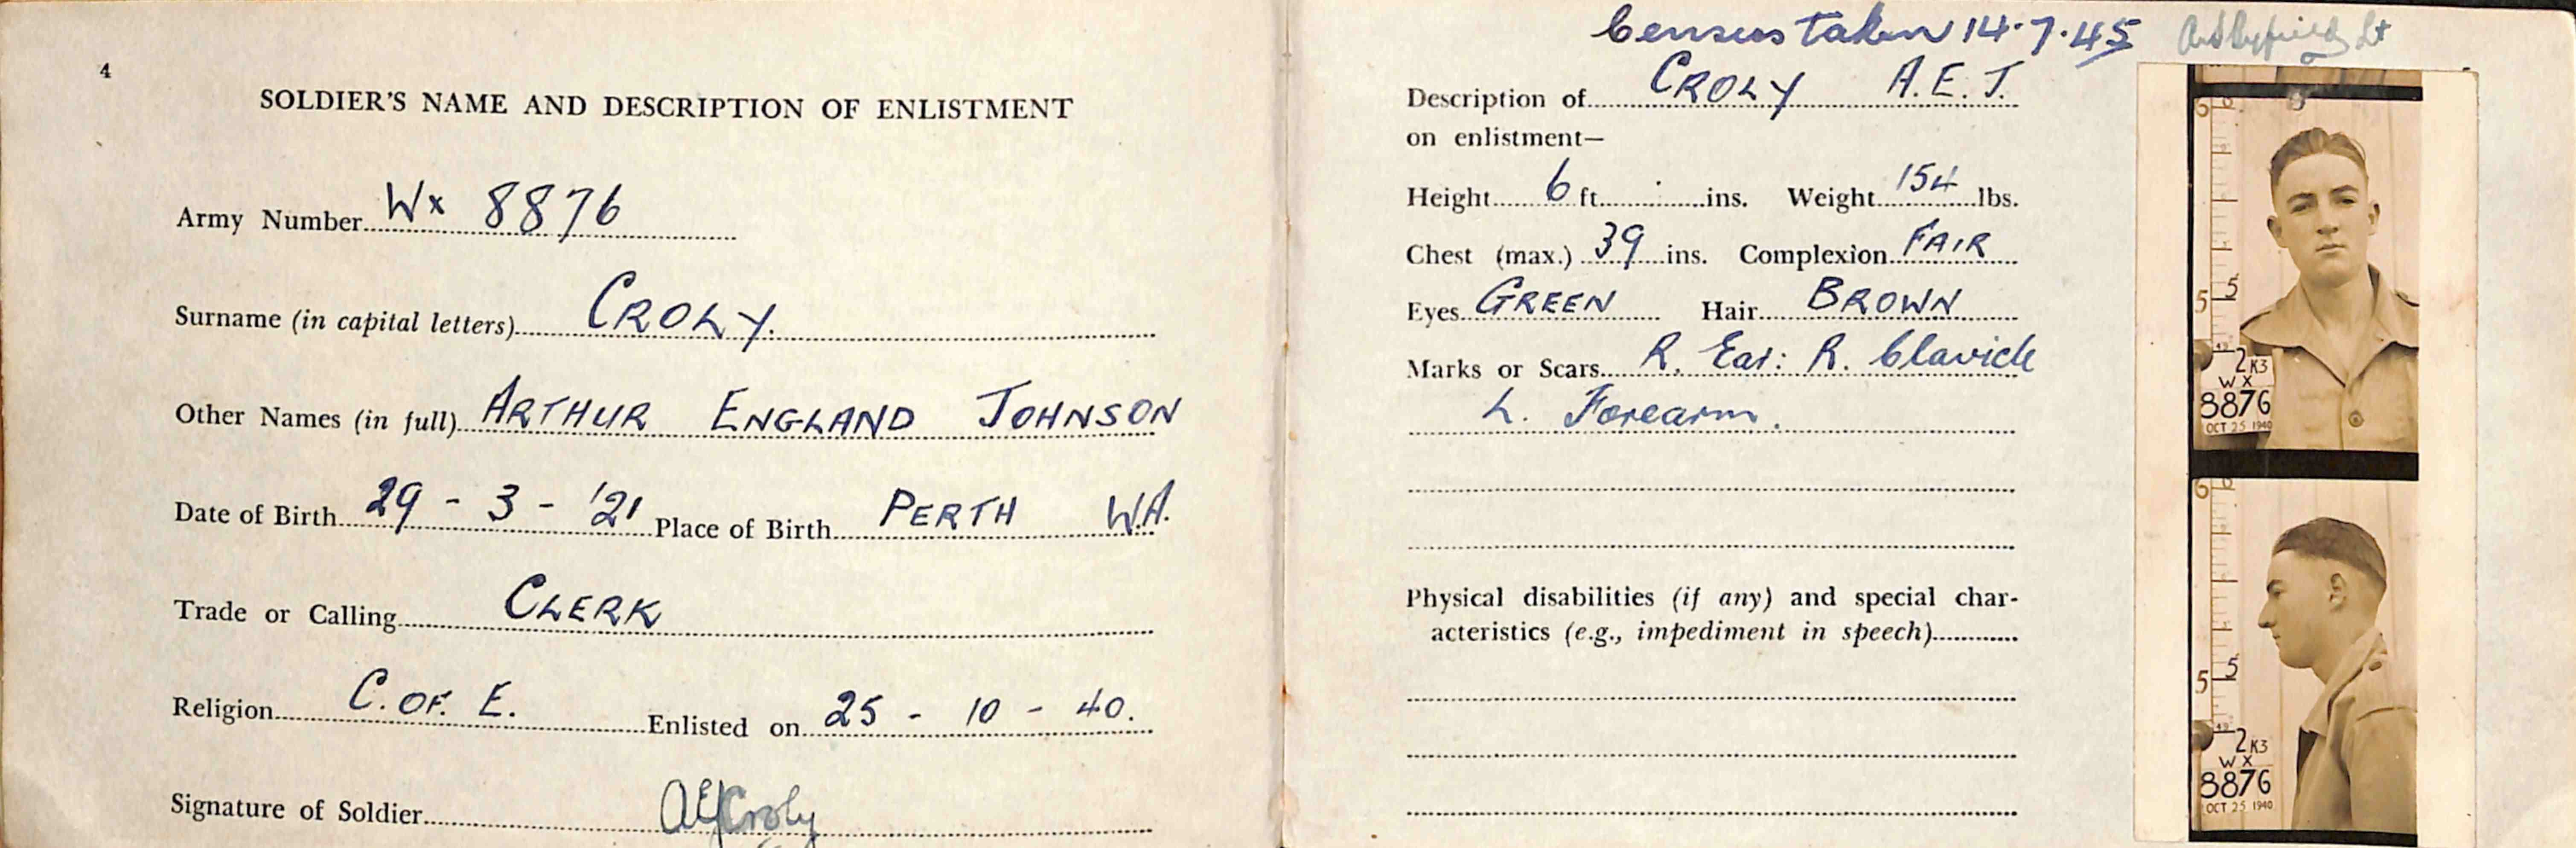 4
SOLDIER'S NAME AND DESCRIPTION OF ENLISTMENT
Army Number Wx 8876
Surname (in capital letters) CROLY.
Other Names (in full) ARTHUR ENGLAND JOHNSON
Date of Birth 29 - 3 - '21 Place of Birth PERTH W.A.
Trade or Calling CLERK
Religion C. OF. E. Enlisted on 25 - 10 - 40.
Signature of Soldier AEJCroly
Census taken 14.7.45
Description of CROLY A.E.J.
on enlistment—
Height 6 ft. ins. Weight 154 lbs.
Chest (max.) 39 ins. Complexion FAIR
Eyes GREEN Hair BROWN
Marks or Scars R. Ear: R. Clavicle
L. Forearm.
Physical disabilities (if any) and special char-
acteristics (e.g., impediment in speech)
6
5
5
2K3
WX
8876
OCT 25 1940
6
5
5
2K3
WX
8876
OCT 25 1940